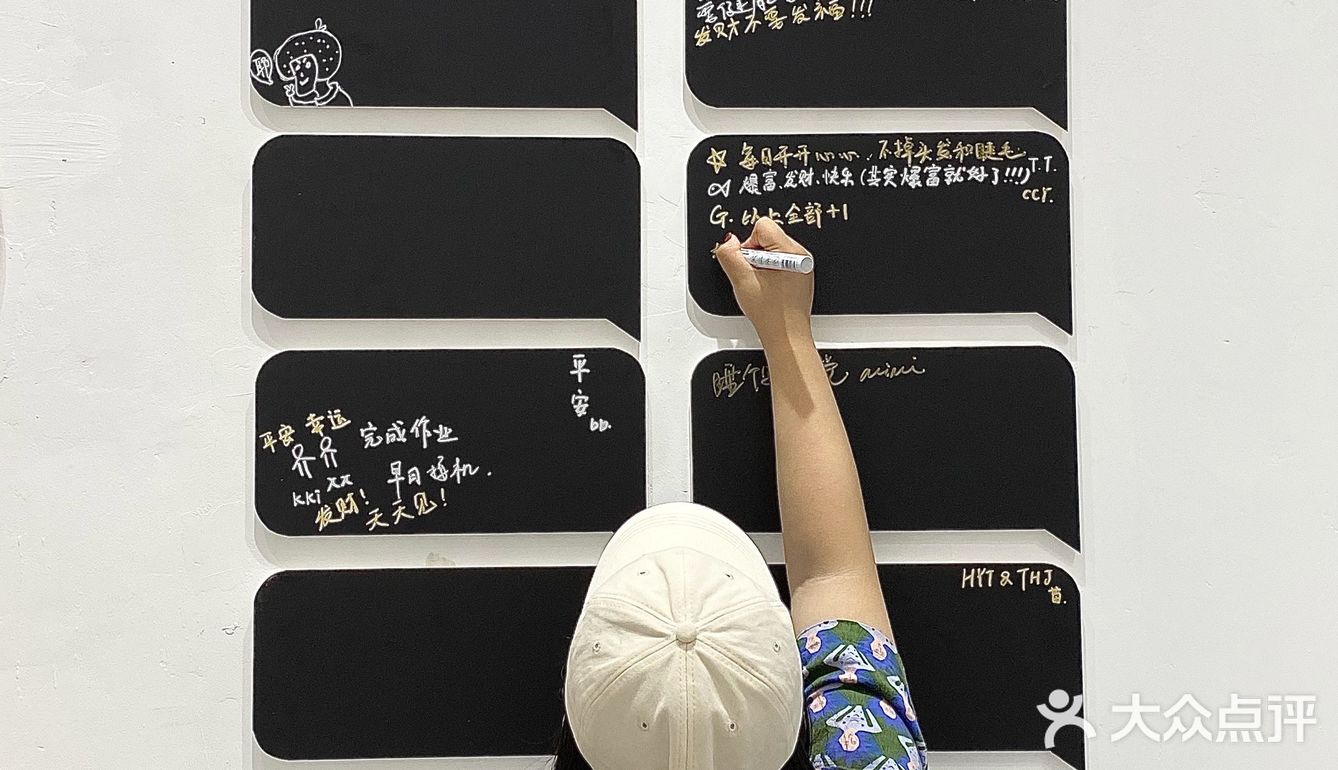 耶
发财不要发福!!!
☆ 每日开开心心、不掉头发和睫毛 T.T.
爆富、发财、快乐(其实爆富就好了!!!)
CCY.
G. 以上全部+1
平安
bb.
平安 幸运
齐齐
完成作业
kki xx
早日 机.
发财!
天天见!
睡个 觉 mimi
HYT & THJ
苗.
大众点评